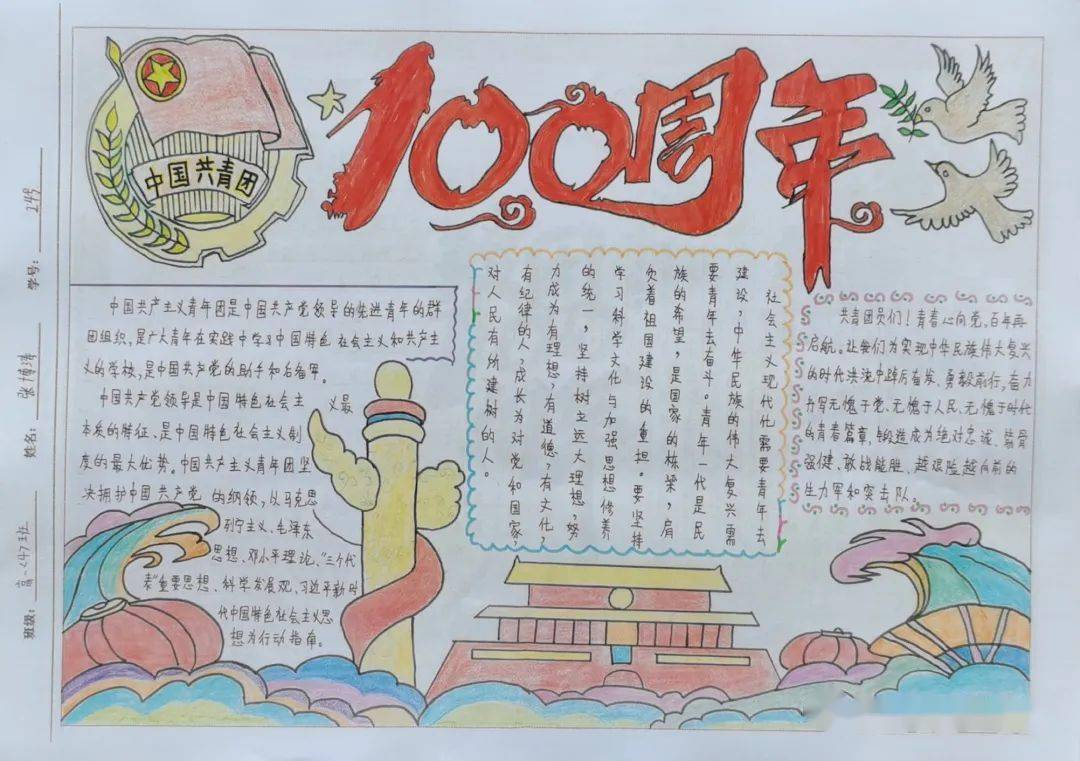 中国共青团
100周年
中国共产主义青年团是中国共产党领导的先进青年的群
团组织,是广大青年在实践中学习中国特色社会主义和共产主
义的学校,是中国共产党的助手和后备军。
中国共产党领导是中国特色社会主义最
本质的特征、是中国特色社会主义制
度的最大优势。中国共产主义青年团坚
决拥护中国共产党的纲领,以马克思
列宁主义、毛泽东
思想、邓小平理论、“三个代
表”重要思想、科学发展观、习近平新时
代中国特色社会主义思
想为行动指南。
社会主义现代化需要青年去
建设,中华民族的伟大复兴需
要青年去奋斗。青年一代是民
族的希望,是国家的栋梁,肩
负着祖国建设的重担。要坚持
学习科学文化与加强思想修养
的统一,坚持树立远大理想,努
力成为有理想,有道德,有文化,
有纪律的人,成长为对党和国家,
对人民有所建树的人。
共青团员们!青春心向党,百年再
启航。让我们为实现中华民族伟大复兴
的时代洪流中踔厉奋发、勇毅前行,奋力
书写无愧于党、无愧于人民、无愧于时代
的青春篇章,锻造成为绝对忠诚、骨
强健、敢战能胜、越艰险越向前的
生力军和突击队。
学号:24号
姓名:张博涛
班级:高一<4>班